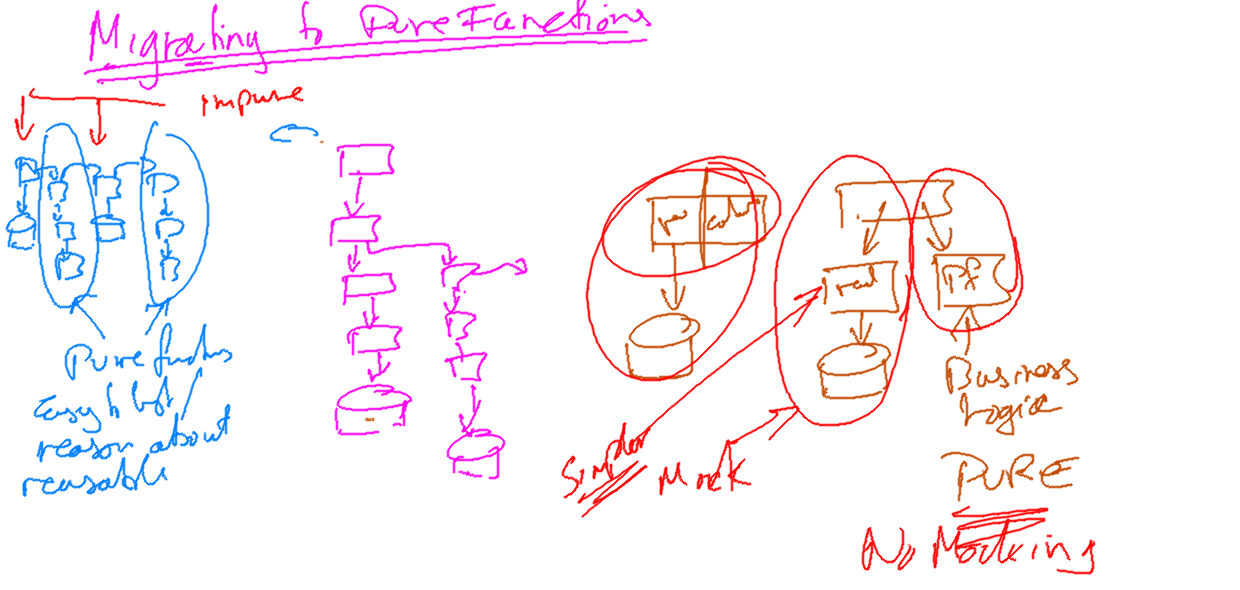 Migrating to Pure Functions
impure
Pure functns
Easy to test
reason about
reusable
read
PF
Business
Logic
Simpler
Mock
PURE
No Mocking